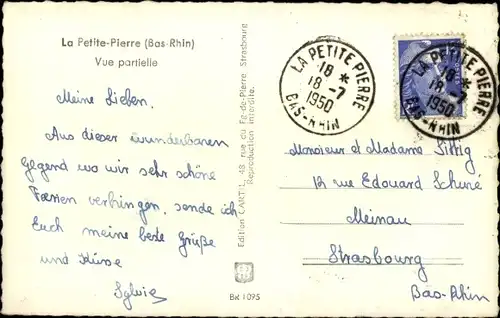 La Petite-Pierre (Bas-Rhin)
Vue partielle
Meine Lieben.
Aus dieser wunderbaren
Gegend wo wir sehr schöne
Ferien verbringen, sende ich
Euch meine beste Grüße
und Küsse
Sylvie
Edition CARTL, 48 rue du Fg-de-Pierre Strasbourg
Reproduction interdite.
BR 1095
LA PETITE PIERRE
18 *
18 -7
1950
BAS-RHIN
LA PETITE PIERRE
18 *
18 -7
1950
BAS-RHIN
Monsieur et Madame Sittig
12 rue Edouard Schuré
Meinau
Strasbourg
Bas-Rhin